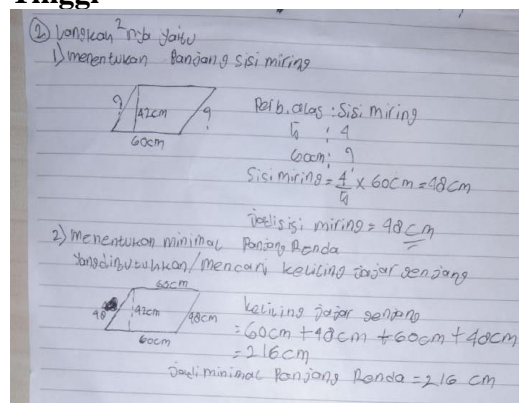 Tinggi
② Langkah²nya yaitu
1) menentukan Panjang sisi miring
? 42cm ?
60cm
Perb. alas : Sisi miring
5 : 4
60cm : ?
Sisi miring = 4/5 x 60cm = 48cm
Jadi sisi miring = 48cm
2) menentukan minimal Panjang Renda
Yang dibutuhkan/mencari keliling jajar genjang
60cm
48 42cm 48cm
60cm
keliling jajar genjang
= 60cm + 48cm + 60cm + 48cm
= 216cm
Jadi minimal Panjang Renda = 216 cm